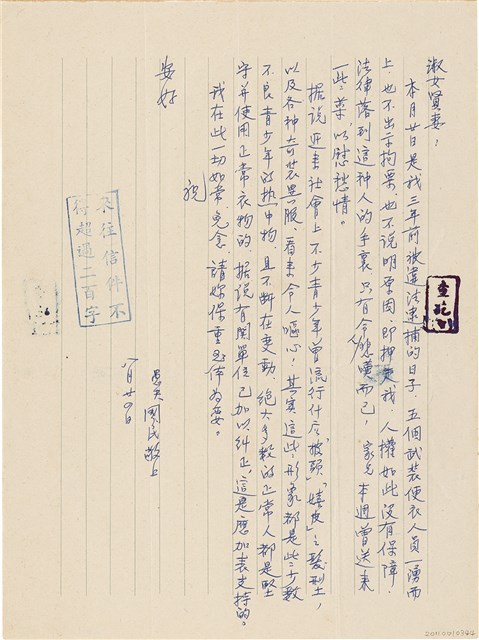 淑女賢妻：
本月廿日是我三年前被違法逮捕的日子，五個武裝便衣人員一湧而
上，也不出示拘票，也不說明原因，即押走我，人權如此沒有保障，
法律落到這種人的手裏，只有令 嘆而已，家兄本週曾送來
一些菜，以慰愁情。
据說近來社會上不少青少年曾流行什么「披頭」「嬉皮」之髮型，
以及各种奇裝異服，看來令人嘔心，其實這些形象都是些少數
不良青少年的热中物，且不断在变動，絕大多数的正常人都是堅
守并使用正常衣物的，据说有関單位已加以糾正，這是應加表支持的。
我在此一切如常，免念，請妳保重身体為要。
祝
安好
愚夫 國民 敬上
八月廿 日
來往信件不
得超過二百字
查訖
查訖